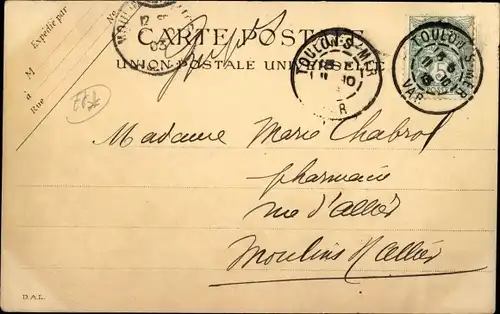 Expédié par
M
à
Rue
No
MOULINS
12 SE
03
CARTE POSTALE
UNION POSTALE UNIVERSELLE
TOULON-S-MER
TOULON-S-MER
VAR
Madame Marie Chabrol
pharmacie
rue d'allier
Moulins s/allier
D.A.L.